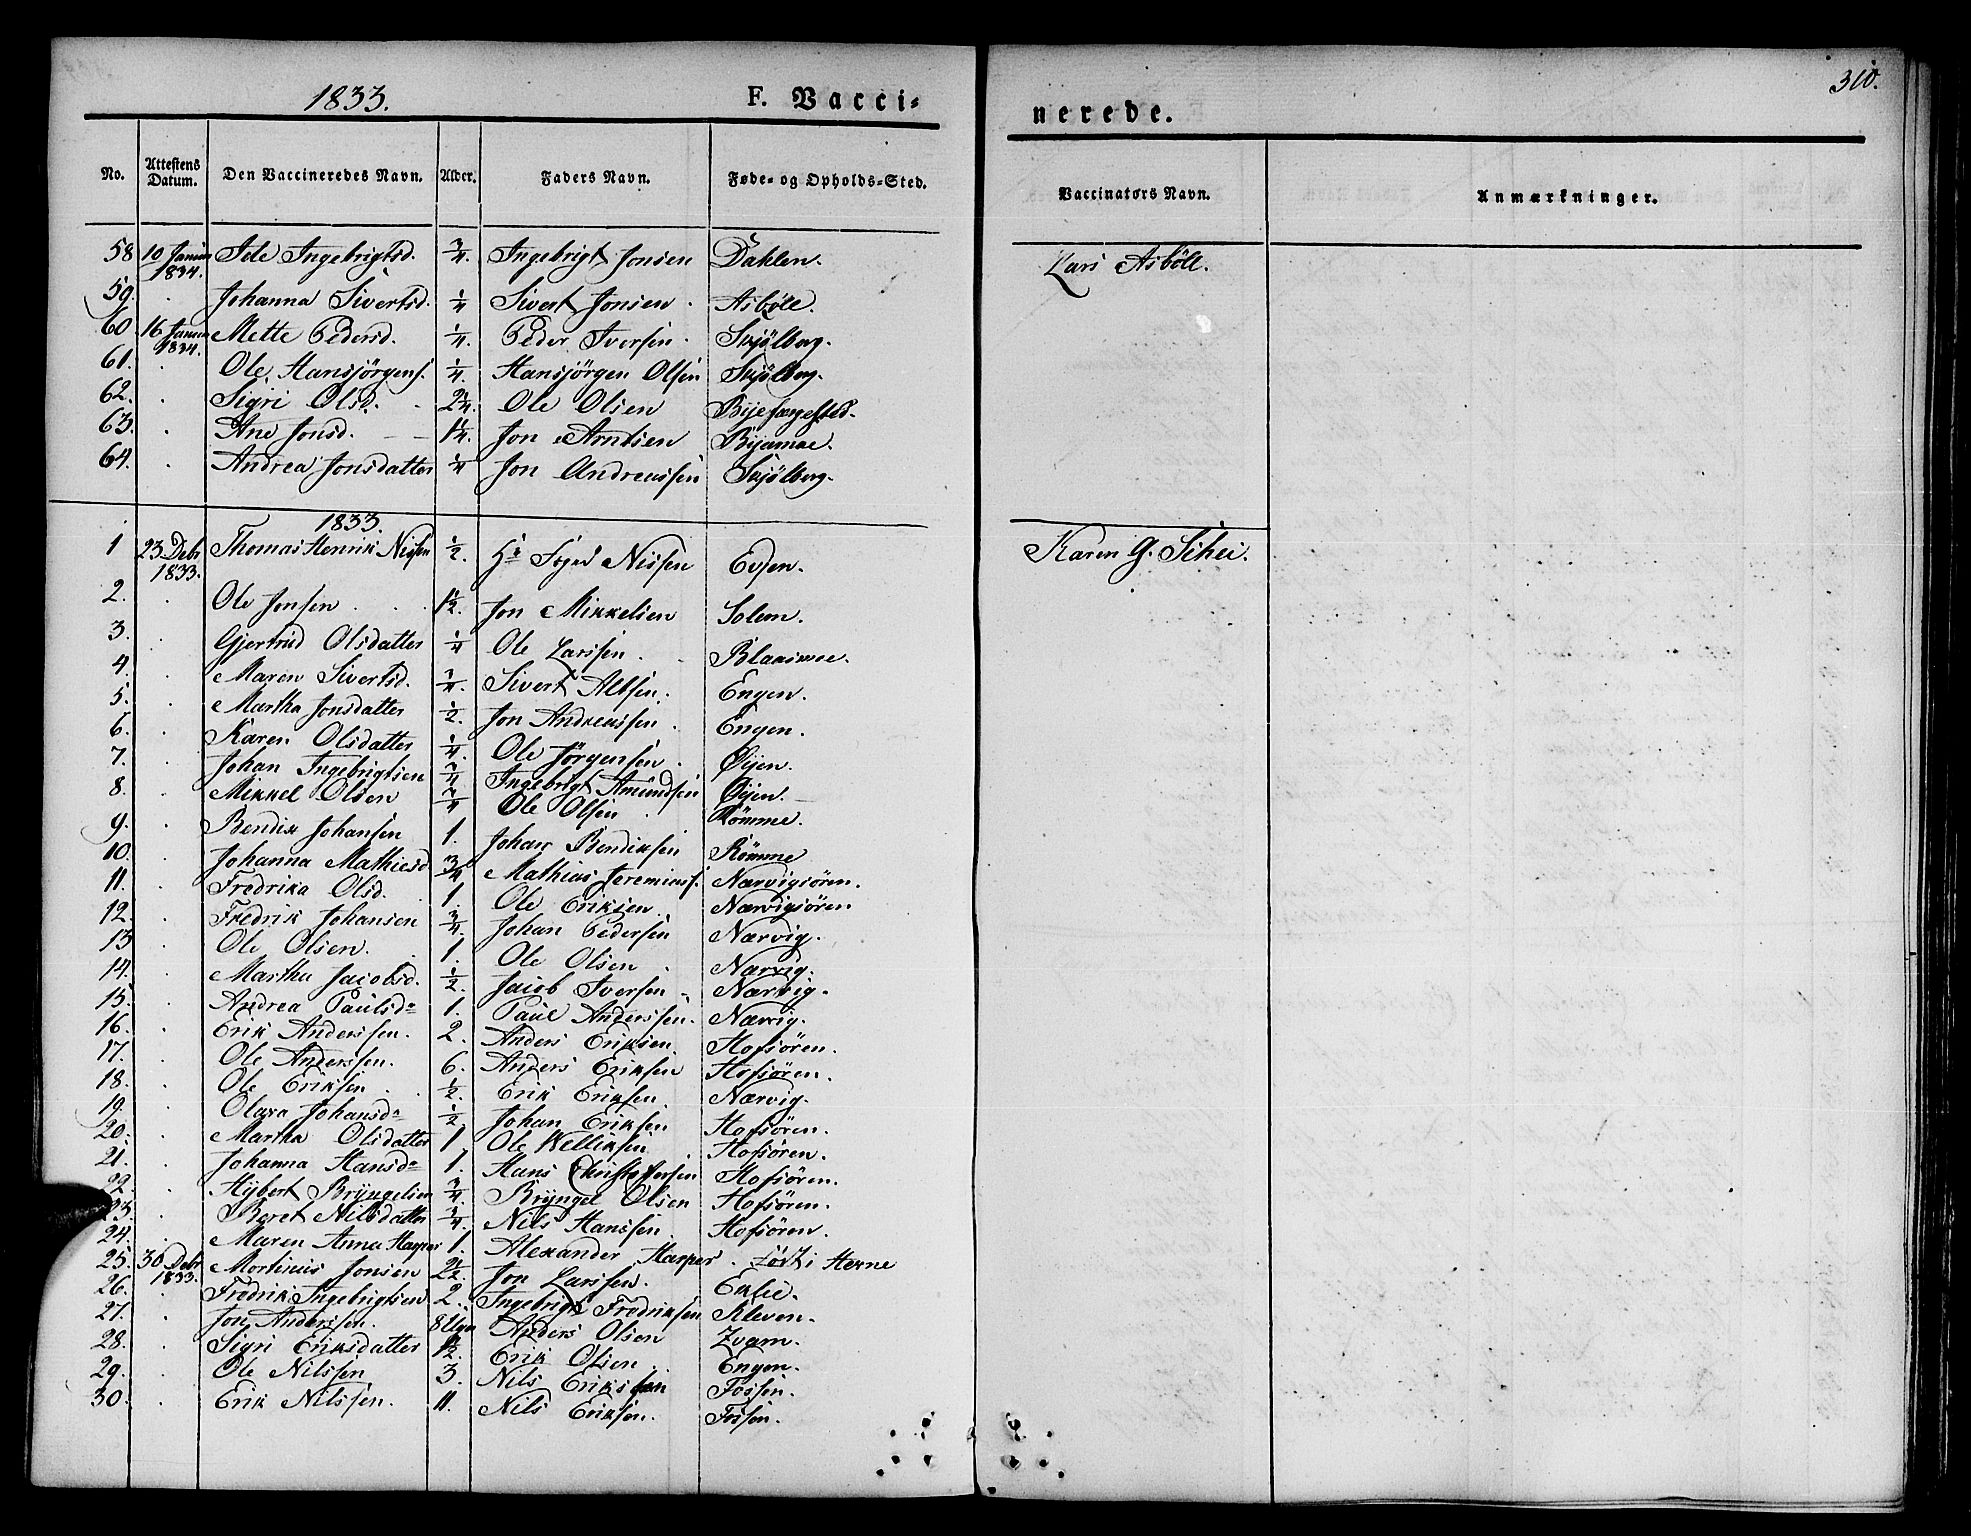 1833.
F. Vacci-
nerede.
310.
No. Attestens Datum. Den Vaccineredes Navn. Alder. Faders Navn. Føde- og Opholds-Sted. Vaccinators Navn. Anmærkninger.
58 10 Januar 1834. Ingebrigtsd. 3/4. Ingebrigt Jonsen Dahlen. Lars Asböll.
59. . Johanna Sivertsd. 1/4 Sivert Jonsen . Asböll.
60. 16 Januar 1834. Mette Pedersd. 1/4. Peder Iversen . Skjölberg.
61. . Ole Hansjörgens. 1/4. Hansjörgen Olsen Skjölberg.
62. . Sigri Olsd. 2 3/4. Ole Olsen
63. . Ane Jonsd. 1 1/4. Jon Arntsen Byamoe.
64. . Andrea Jonsdatter 1/4 Jon Andreassen Skjölberg.
1833.
1 23 Debr 1833. Thomas Henrik Nissen 1/2 Hr Nissen Evjen. Karen G. Schei.
2. . Ole Jonsen . . 1 1/2. Jon Mikkelsen Solem.
3. . Gjertrud Olsdatter 1/4 Ole Larssen . Blaasmoe.
4. . Maren Sivertsd. 3/4. Sivert Altsen. Engen.
5. . Martha Jonsdatter 1/2. Jon Andreassen . Engen.
6. . Karen Olsdatter 1/4. Ole Jørgensen . Øijen.
7. . Johan Ingebrigtsen 3/4 Ingebrigt Amundsen Øijen.
8. . Mikkel Olsen 3/4 Ole Olsen . Römme.
9. . Bendix Johansen 1. Johan Bendiksen Römme
10. . Johanna Mathiesd 3/4 Mathias Jeremias. Nærvigsören.
11. . Fredrika Olsd. 1. Ole Eriksen Nærvigsören
12. . Fredrik Johansen 3/4. Johan Pedersen Nærvig.
13 . Ole Olsen. 1. Ole Olsen . Nærvig.
14. . Martha Jacobsd. 1/2. Jacob Iversen Nærvig.
15. . Andrea Paulsd 1. Paul Anderssen. Nærvig.
16. . Erik Anderssen. 2. Anders Eriksen Hofsören.
17. . Ole Anderssen. 6. Anders Eriksen Hofsören.
18. . Ole Eriksen . 1/2. Erik Eriksen. Nærvig.
19. . Olava Johansd 1/2 Johan Eriksen Hofsören.
20. . Martha Olsdatter 1. Ole Hofsören.
21. . Johanna Hansd 1. Hans Christophersen Hofsören.
22. . Hybert Bryngelsen 3/4. Bryngel Olsen Hofsören.
23. . Beret Nilsdatter 3/4. Nils Hanssen Hofsören.
24. . Maren Anna Harper 1. Alexander Harper . i Herne
25. 30 Debr 1833. Mortinus Jonsen 2 1/2 Jon Larssen. Eklie.
26. . Fredrik Ingebrigtsen 2. Ingebrigt Fredriksen Kleven.
27. . Jon Anderssen. 8 Uger Anders Olsen
28. . Sigri Eriksdatter 1 1/2. Erik Olsen . Engen.
29. . Ole Nilssen 3. Nils Erikssen Fossen.
30. . Erik Nilssen. 11. Nils Eriksen. Fossen.